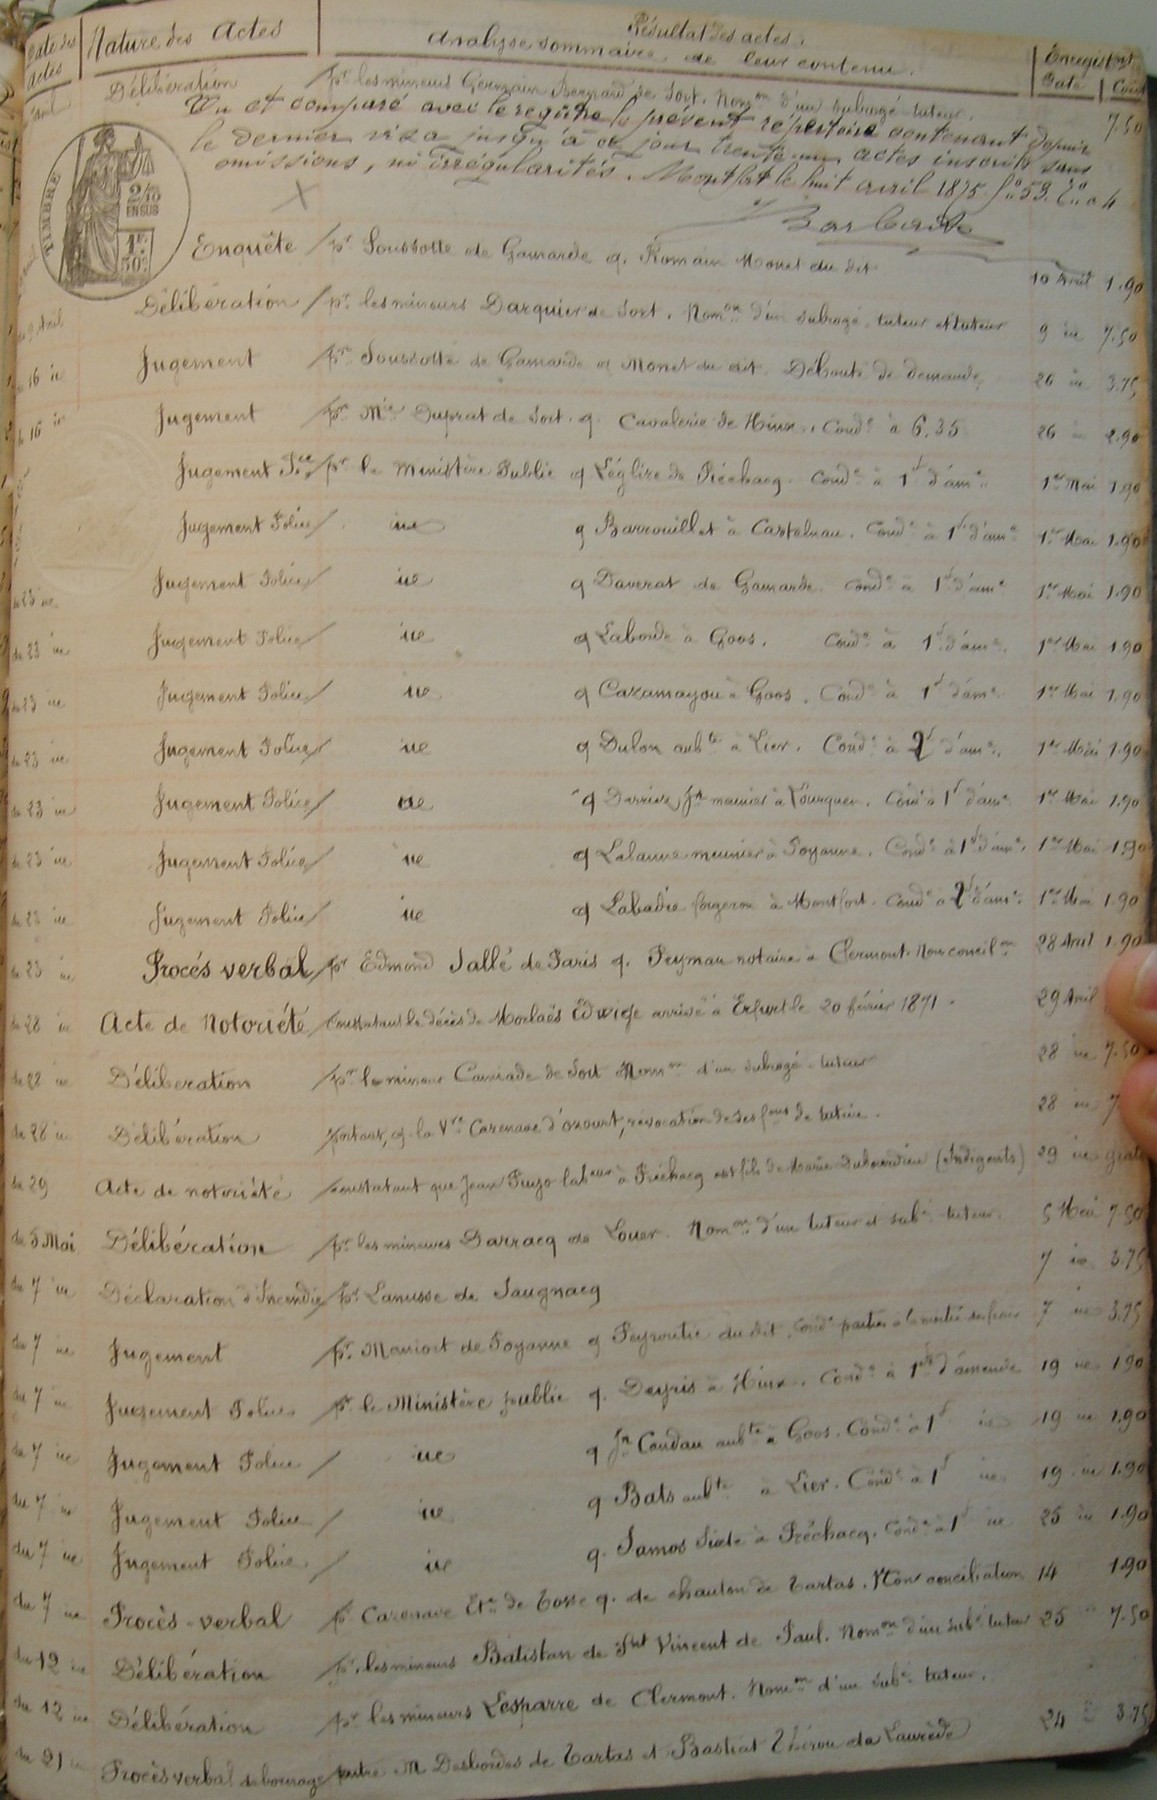 Date des actes | Nature des Actes | Résultat des actes. Analyse sommaire de leur contenu. | Enregistmt Date | Cout
Délibération / pr les mineurs Germain Bernard de Sort. Nomon d'un subrogé tuteur. 7.50
Vu et comparé avec le registre le présent répertoire contenant depuis
le dernier visa jusqu'à ce jour trente un actes inscrits sans
omissions, ni irrégularités. Montfort le huit avril 1875. fo 53. Co 4
TIMBRE 2/10 EN SUS 1F. 50c.
Enquête / pr Soussotte de Gamarde q. Romain Monet du dit 10 Avril 1.90
du 9 Avril Délibération / pr les mineurs Darquier de Sort. Nomon d'un subrogé tuteur et tuteur 9 ie 7.50
du 16 ie Jugement / pr Soussotte de Gamarde q Monet du dit. Déboute de demande. 26 ie 3.75
du 16 ie Jugement / pr Mie Duprat de Sort. q. Cavalerie de Hinx. Conde à 6.35 26 ie 2.90
Jugement Pce / pr le Ministère Public q Léglize de Préchacq. Conde à 1f d'ame 1er Mai 1.90
Jugement Police / ie q Barrouillet à Castelnau. Conde à 1f d'ame 1er Mai 1.90
du 23 ie Jugement Police / ie q Daverat de Gamarde. Conde à 1f d'ame 1er Mai 1.90
du 23 ie Jugement Police / ie q Laborde à Goos. Conde à 1f d'ame. 1er Mai 1.90
du 23 ie Jugement Police / ie q Cazamayou à Goos. Conde à 1f d'ame 1er Mai 1.90
du 23 ie Jugement Police / ie q Dulon aubte à Lier. Conde à 2f d'ame. 1er Mai 1.90
du 23 ie Jugement Police / ie q Darrieu Jn meunier à Lourquen. Conde à 1f d'ame 1er Mai 1.90
du 23 ie Jugement Police / ie q Lalanne meunier à Poyanne. Conde à 1f d'ame. 1er Mai 1.90
du 23 ie Jugement Police / ie q Labadie forgeron à Montfort. Conde à 2f d'ame 1er Mai 1.90
du 23 ie Procés verbal / pr Edmond Sallé de Paris q. Peyman notaire à Clermont. Non concilon 28 Avril 1.90
du 28 ie Acte de Notoriété / constatant le décès de Morlaës Edwige arrivé à Erfurt le 20 février 1871. 29 Avril
du 28 ie Délibération / pr le mineur Camiade de Sort Nomon d'un subrogé-tuteur 28 ie 7.50
du 28 ie Délibération / portant, q. la Vve Carenave d'Ozourt, révocation de ses fons de tutrice. 28 ie 7
du 29 Acte de notoriété / constatant que Jean Puyo labeur à Préchacq est fils de Marie Dubourdieu (Indigents) 29 ie gratis
du 5 Mai Délibération / pr les mineures Darracq de Louer. Nomon d'un tuteur et sube tuteur. 5 Mai 7.50
du 7 ie Déclaration d'Incendie / pr Lanusse de Saugnacq 7 ie 3.75
du 7 ie Jugement / pr. Manciort de Poyanne q Peyroutie du dit. Conde parties à la moitié des frais 7 ie 3.75
du 7 ie Jugement Police pr le Ministère public q. Deyris à Hinx. Conde à 1f d'amende 19 ie 1.90
du 7 ie Jugement Police / ie q Jn Condau aubte à Goos. Conde à 1f ie 19 ie 1.90
du 7 ie Jugement Police / ie q Bats aubte à Lier. Conde à 1f ie 19 ie 1.90
du 7 ie Jugement Police / ie q. Samos Sixte à Préchacq. Conde à 1f ie 25 ie 1.90
du 7 ie Procès-verbal pr Carenave Ete de Tosse q. de Chauton de Tartas. Non conciliation 14 1.90
du 12 ie Délibération / pr. les mineurs Batistan de Snt Vincent de Paul. Nomon d'un sube tuteur 25 7.50
du 12 ie Délibération / pr les mineurs Lesparre de Clermont. Nomon d'un sube tuteur.
du 21 ie Procès verbal de bornage / entre M Desbordes de Tartas et Bastiat Thérou de Laurède 24 3.75